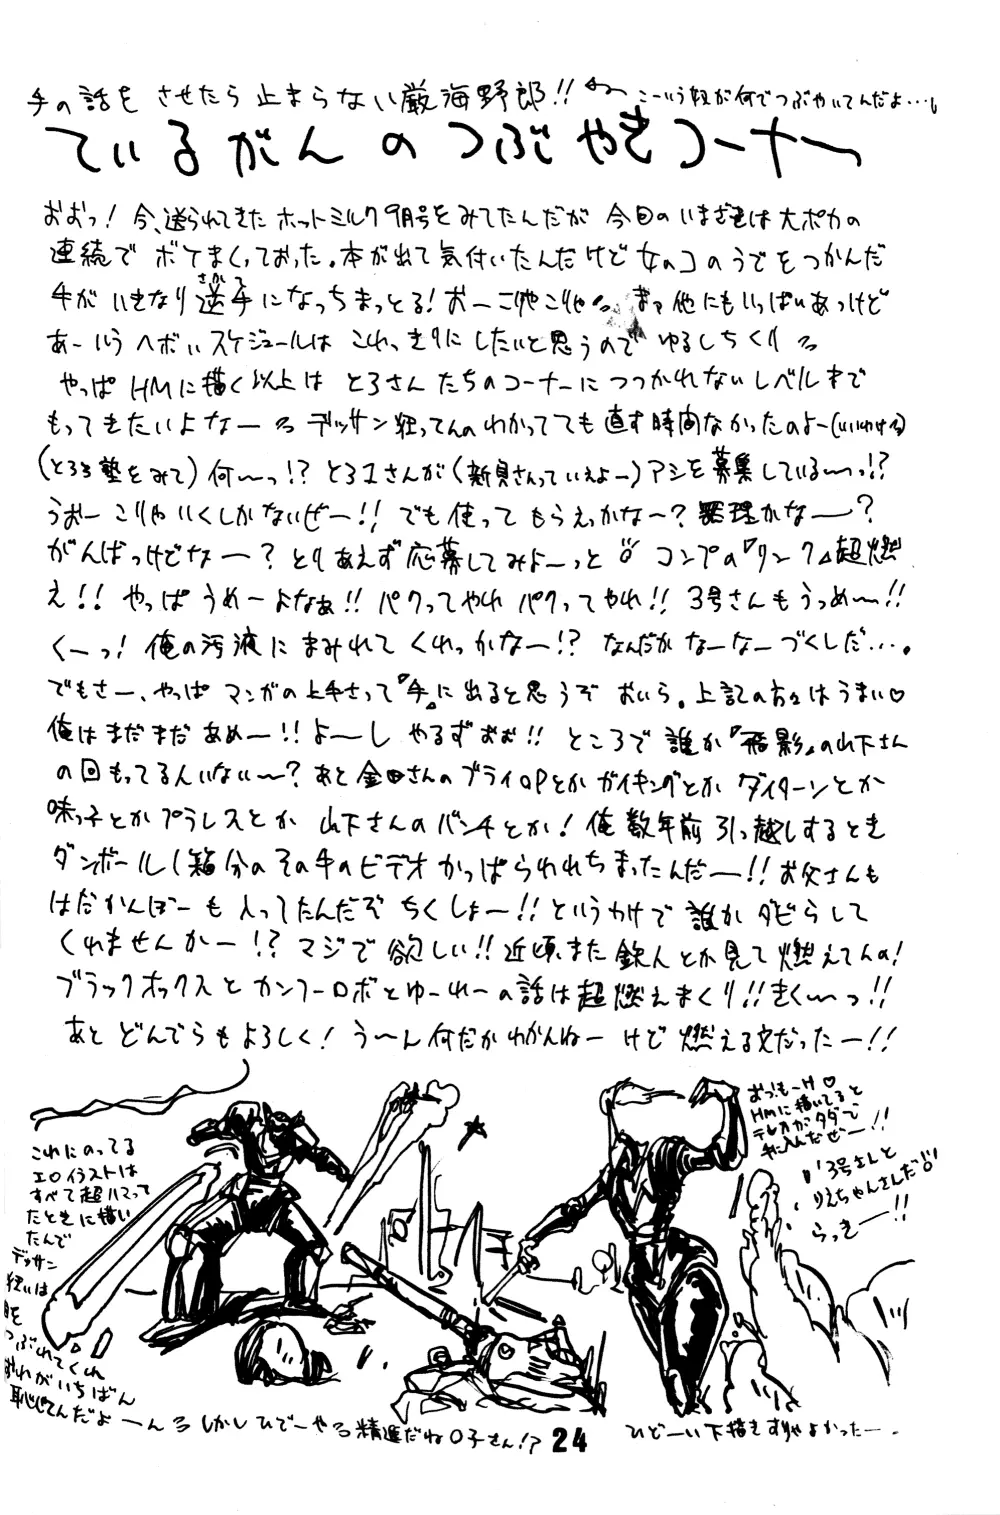 手の話をさせたら止まらない厳海野郎!! こーいう奴が何でつぶやいてんだよ…。
ているがんのつぶやきコーナー
おおっ!今、送られてきたホットミルク9月号をみてたんだが今回のいまざきは大ポカの
連続でボケまくっておった。本が出て気付いたんだけど女のコのうでをつかんだ
手がいきなり逆手になっちまっとる!おーこりゃこりゃ まァ他にもいっぱいあっけど
さかて
あーいうヘボいスケジュールはこれっきりにしたいと思うのでゆるしちくり
やっぱHMに描く以上はとろさんたちのコーナーにつつかれないレベルまで
もってきたいよなー デッサン狂ってんのわかってても直す時間なかったのよー(いいわける)
(とろろ塾をみて)何〜っ!?とろ1さんが(新貝さんっていえよー)アシを募集している〜っ!?
うおーこりゃいくしかないぜー!!でも使ってもらえっかな〜?無理かな〜?
がんばっけどなー?とりあえず応募してみよーっと コンプの『リンク』超燃
え!!やっぱうめーよなぁ!!パクってやれパクってやれ!!3号さんもうっめ〜!!
くーっ!俺の汚液にまみれてくれっかなー!?なんだかなーなーづくしだ…。
でもさー、やっぱマンガの上手さって『手』に出ると思うぞおいら。上記の方々はうまい♡
俺はまだまだあめー!!よ〜しやるずおお!!ところで誰か『飛影』の山下さん
の回もってる人いない〜?あと金田さんのブライOPとかガイキングとかダイターンとか
味っ子とかプラレスとか山下さんのバンチとか!俺数年前引っ越しするとき
ダンボール1箱分のその手のビデオかっぱらわれちまったんだー!!お父さんも
はだかんぼーも入ってたんだぞちくしょー!!というわけで誰かダビらして
くれませんかー!?マジで欲しい!!近頃また鉄人とか見て燃えてんの!
ブラックオックスとカンフーロボとゆーれーの話は超燃えまくり!!きく〜っ!!
あとどんでらもよろしく!う〜ん何だかわかんねーけど燃える文だったー!!
おっ!もーH♡
HMに描いてると
テレカがタダで
手に入んだぜー!!
3号さんと
りえちゃんさんだ
らっきー!!
これにのってる
エロイラストは
すべて超ハマって
たときに描い
たんで
デッサン
狂いは
目を
つぶれてくれ
おれがいちばん
恥じてんだよ〜ん しかしひでーやる精進だね〇子さん!?
24
ひどーい下描きすりゃよかったー。